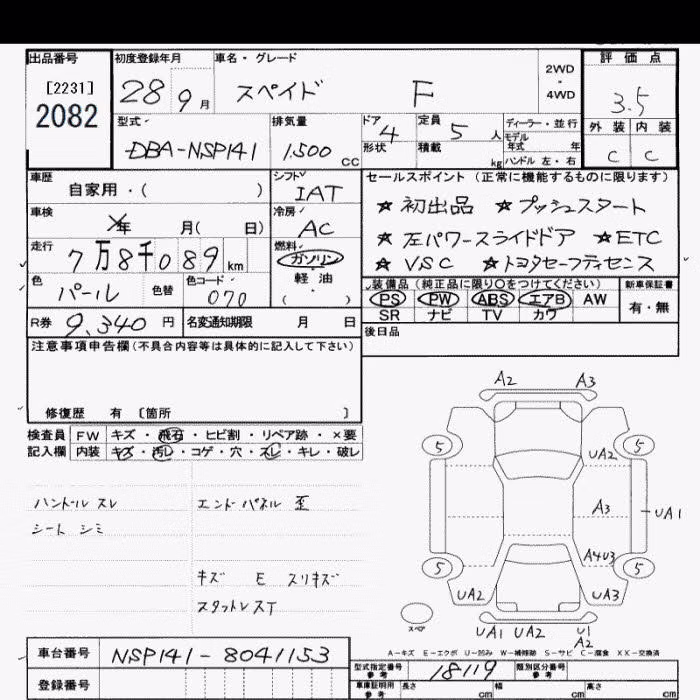 出品番号
[2231]
2082
初度登録年月
28 9月
車名・グレード
スペイド F
2WD
・
4WD
評価点
3.5
外装 内装
C C
型式
DBA-NSP141
排気量
1,500 cc
ドア 4
形状
定員 5 人
積載 kg
ディーラー・並行
モデル年式 年
ハンドル 左・右
車歴
自家用・( )
シフト
IAT
セールスポイント(正常に機能するものに限ります)
★初出品 ★プッシュスタート
★左パワースライドドア ★ETC
★VSC ★トヨタセーフティセンス
車検
年 月( 日)
冷房
AC
走行
7万8千089 km
燃料
ガソリン
軽油
( )
色
パール
色替
色コード
070
装備品(純正品に限り○をつけてください)
PS PW ABS エアB AW
SR ナビ TV カワ
新車保証書
有・無
R券
9,340 円
名変通知期限 月 日
後日品
注意事項申告欄(不具合内容等は具体的に記入して下さい)
修復歴 有 〔箇所 〕
検査員 FW キズ・飛石・ヒビ割・リペア跡・×要
記入欄 内装 キズ・汚レ・コゲ・穴・スレ・キレ・破レ
ハンドル スレ
シート シミ
エンドパネル 歪
キズ E スリキズ
スタットレスT
A2 A3
5 5
UA2
A3
UA1
A4U3
5 5
UA2 UA3
スペア
UA1 UA2 U1
A2
A-キズ E-エクボ U-凹み W-補修跡 S-サビ C-腐食 XX-交換済
車台番号
NSP141-8041153
型式指定番号
参考
18119
類別区分番号
参考
登録番号
車庫証明用
参考
長さ cm 幅 cm 高さ cm